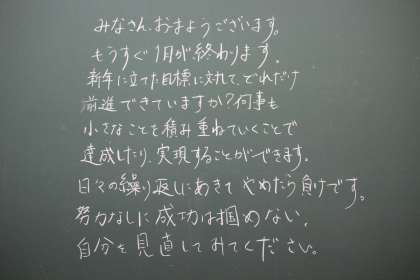 みなさん、おはようございます。
もうすぐ1月が終わります。
新年に立てた目標に対して、どれだけ
前進できていますか？何事も
小さなことを積み重ねていくことで
達成したり、実現することができます。
日々の繰り返しにあきて やめたら負けです。
努力なしに成功は掴めない。
自分を見直してみてください。